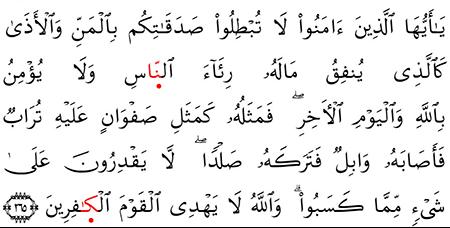 يَٰٓأَيُّهَا ٱلَّذِينَ ءَامَنُوا۟ لَا تُبْطِلُوا۟ صَدَقَٰتِكُم بِٱلْمَنِّ وَٱلْأَذَىٰ
كَٱلَّذِى يُنفِقُ مَالَهُۥ رِئَآءَ ٱلنَّاسِ وَلَا يُؤْمِنُ
بِٱللَّهِ وَٱلْيَوْمِ ٱلْأَخِرِ ۖ فَمَثَلُهُۥ كَمَثَلِ صَفْوَانٍ عَلَيْهِ تُرَابٌ
فَأَصَابَهُۥ وَابِلٌ فَتَرَكَهُۥ صَلْدًا ۖ لَّا يَقْدِرُونَ عَلَىٰ
شَىْءٍ مِّمَّا كَسَبُوا۟ ۗ وَٱللَّهُ لَا يَهْدِى ٱلْقَوْمَ ٱلْكَٰفِرِينَ